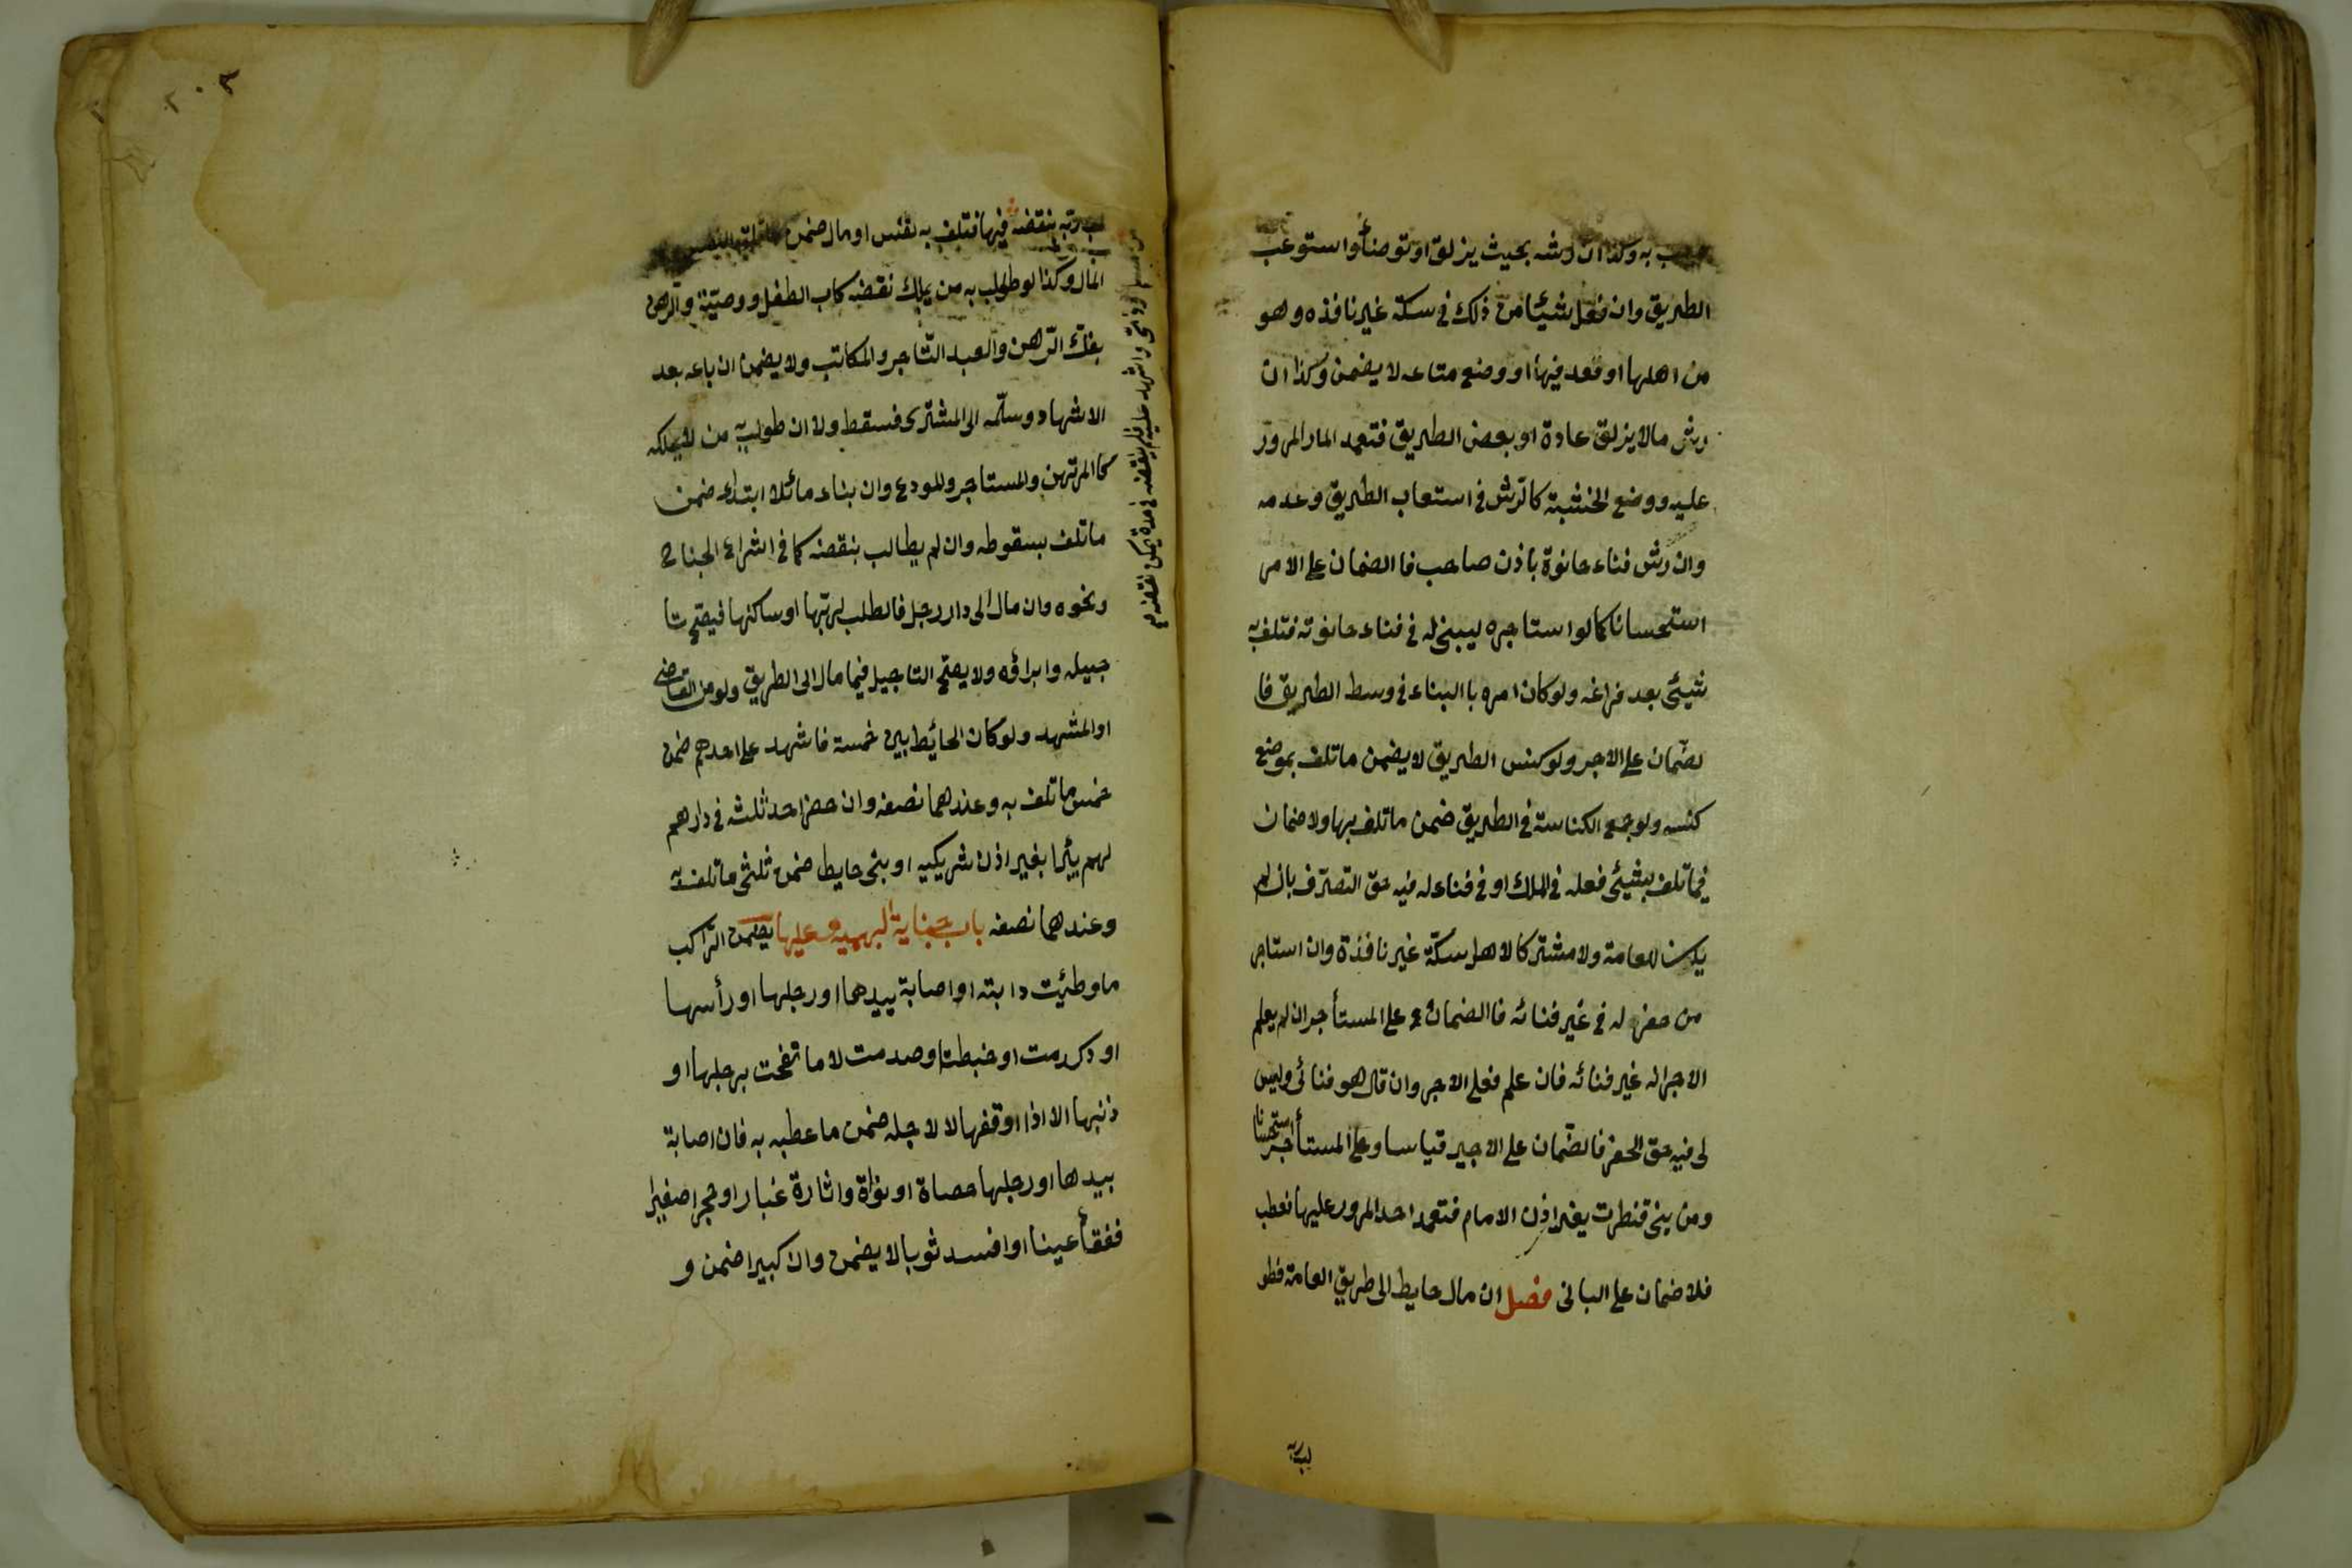 به وكذا ان رشه بحيث يزلق او توضأ واستوعب
الطريق وان فعل شيئا من ذلك في سكة غير نافذه وهو
من اهلها او قعد فيها او وضع متاعه لا يضمن وكذا ان
رش مالا يزلق عادة او بعض الطريق فتعمد المار المرور
عليه ووضع الخشبة كالرش في استعاب الطريق وعدمه
وان رش فناء حانوة باذن صاحب فا الضمان على الامر
استحسانا كما لو استاجره ليبنى له في فناء حانوته فتلف به
شيئى بعد فراغه ولو كان امره با البناء في وسط الطريق فا
لضمان على الاجر ولو كنس الطريق لا يضمن ماتلف بموضع
كنسه ولو جمع الكناسة في الطريق ضمن ماتلف بها ولا ضمان
فيما تلف بشيئى فعله في الملك او في فناء له فيه حق التصرف بان لم
يكن للعامة ولا مشتركا لاهل سكة غير نافذة وان استاجر
من حفر له في غير فنائه فا الضمان على المستأجر ان لم يعلم
الاجر انه غير فنائه فان علم فعلى الاجر وان قال هو فنائى وليس
لى فيه حق الحفر فالضمان على الاجير قياسا وعلى المستأجر استحسانا
ومن بنى قنطرت بغير اذن الامام فتعمد احد المرور عليها فعطب
فلا ضمان على البانى فصل ان مال حايط الى طريق العامة فطو
لب ربه
لب ربه بنقضه فيها فتلف به نفس او مال ضمن
المال وكذا لو طولب به من يملك نقضه كاب الطفل ووصية والراهن
بفك الرهن والعبد التاجر والمكاتب ولا يضمن ان باعه بعد
الاشهاد وسلمه الى المشترى فسقط ولا ان طولب به من لا يملكه
كا المرتهن والمستاجر والمودع وان بناء مائلا ابتداء ضمن
ماتلف بسقوطه وان لم يطالب بنقضه كما في اشراع الجناح
ونحوه وان مال الى دار رجل فالطلب لربها او ساكنها فيصح تا
جيله وابراؤه ولا يصح التاجيل فيما مال الى الطريق ولو من القاضى
او المشهد ولو كان الحائيط بين خمسة فاشهد على احدهم ضمن
خمس ماتلف به وعندهما نصفه وان حفر احد ثلثه في دار هم
لهم بئرا بغير اذن شريكيه او بنى حايط ضمن ثلثى ماتلف به
وعندهما نصفه باب جناية البهيمة وعليها يضمن الراكب
ماوطئيت دابته او اصابة بيدهما او رجلها او رأسها
او كدمت او خبطت او صدمت لا ما نفحت برجلها او
ذنبها الا اذا اوقفها لا لاجله ضمن ماعطبه به فان اصابة
بيدها او رجلها حصاة او نواة واثارة غبار او حجرا صغيرا
ففقأ عينا او افسد ثوبا لا يضمن وان كبيرا ضمن و
واشهد عليه فلم ينقضه في مدة يمكن نقضه
٢٠٣